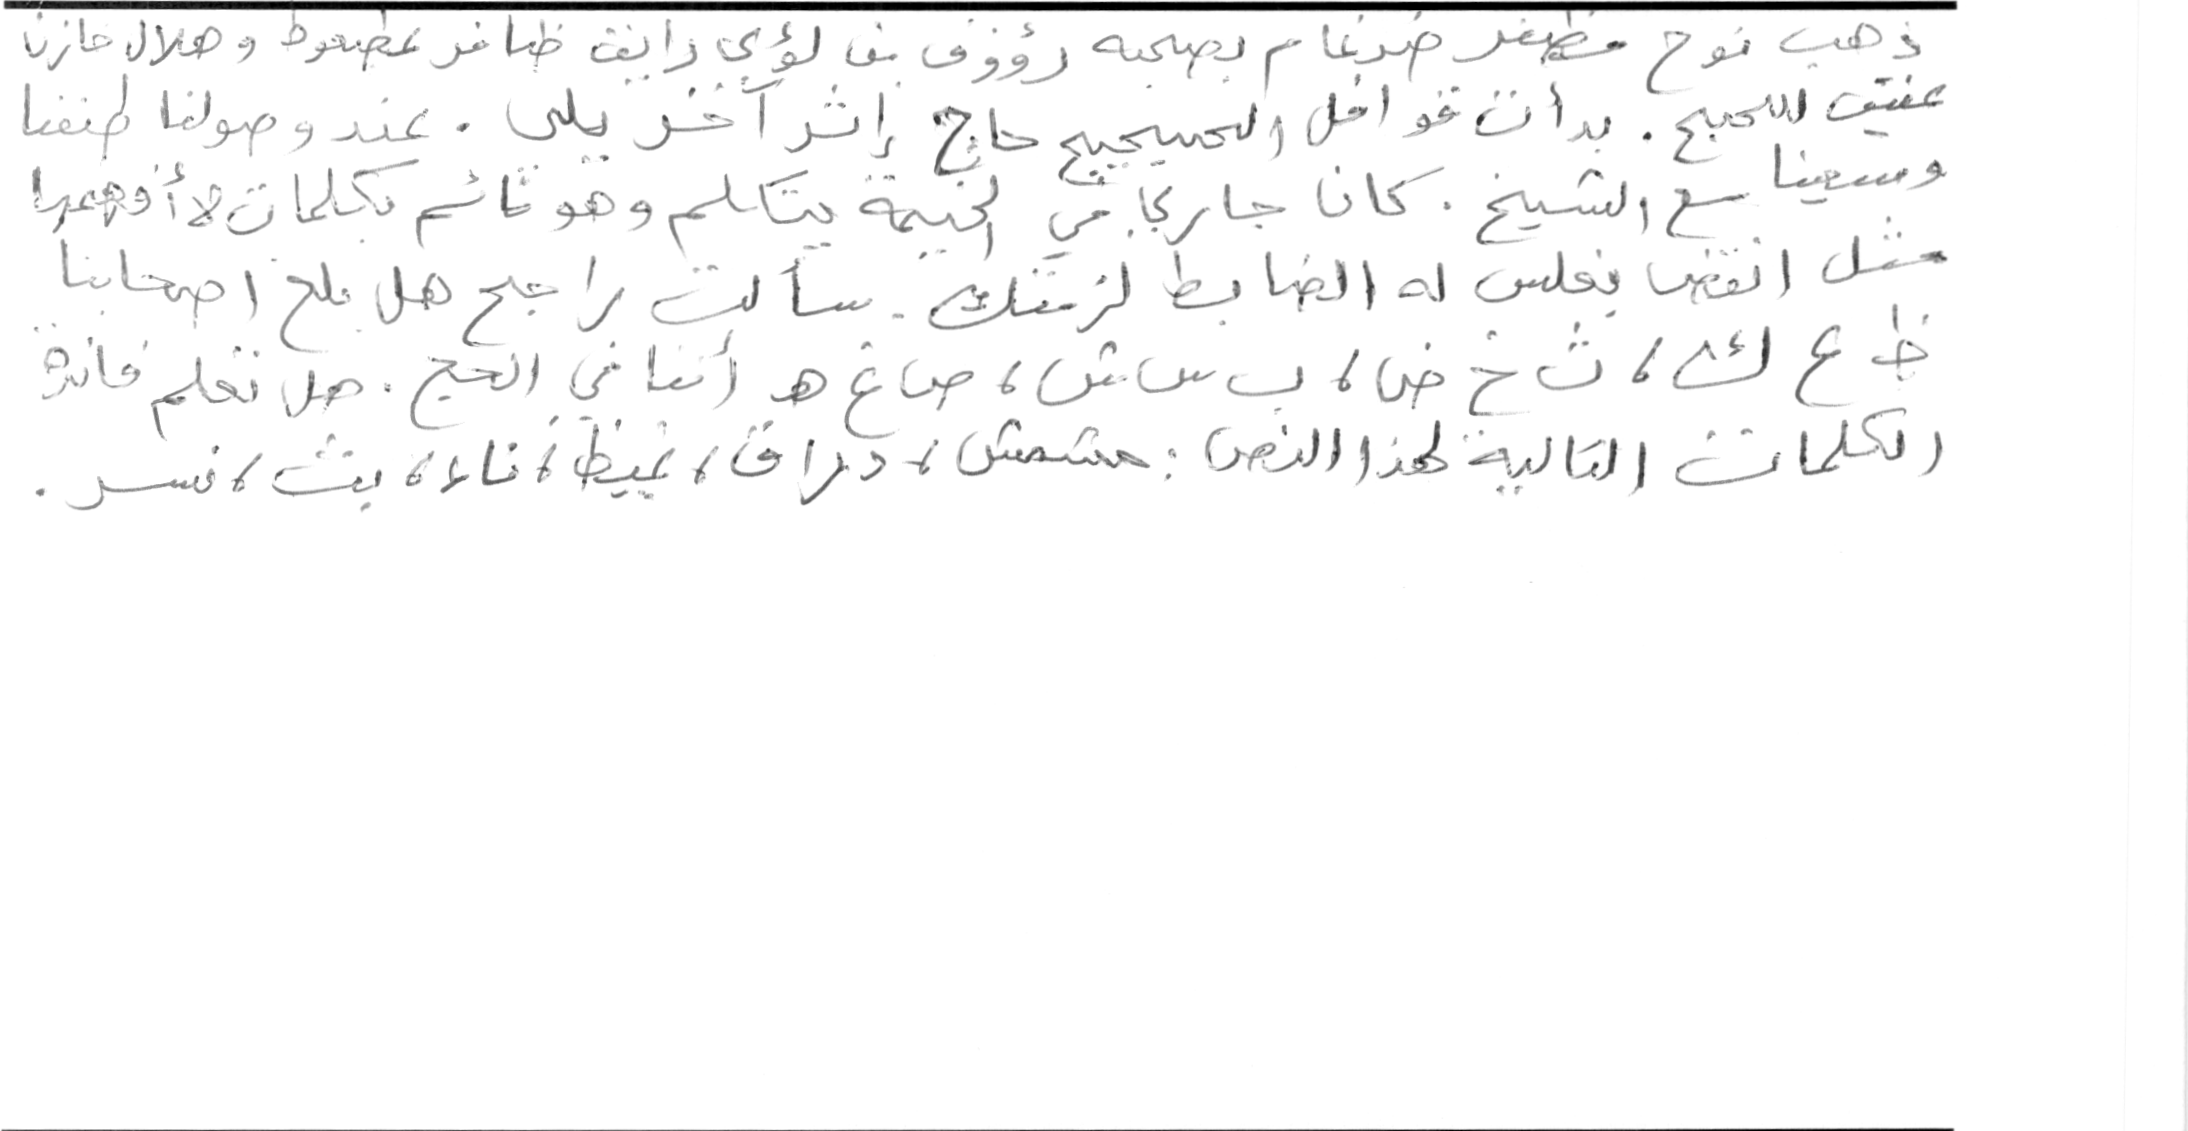 ذهب نوح مظفر ضرغام بصحبه رؤوف بن لؤي رايق ظافر عطعوط وهلال خازن
عفيف للحج. بدأت قوافل الحجيج حاج إثر آخر يلبى. عند وصولنا طفنا
وسعينا مع الشيخ. كان جاري في الخيمة يتكلم وهو نائم بكلمات لا أفهمها
مثل انقض بغلس له الضابط لزمتك. سألت راجح هل بلغ اصحابنا
ظ ع ك، ث خ ض، ب س ش، ص غ هـ أننا في الحج. هل تعلم فائدة
الكلمات التالية لهذا النص: مشمش، دراق، غيظ، ناء، بث، نسر.